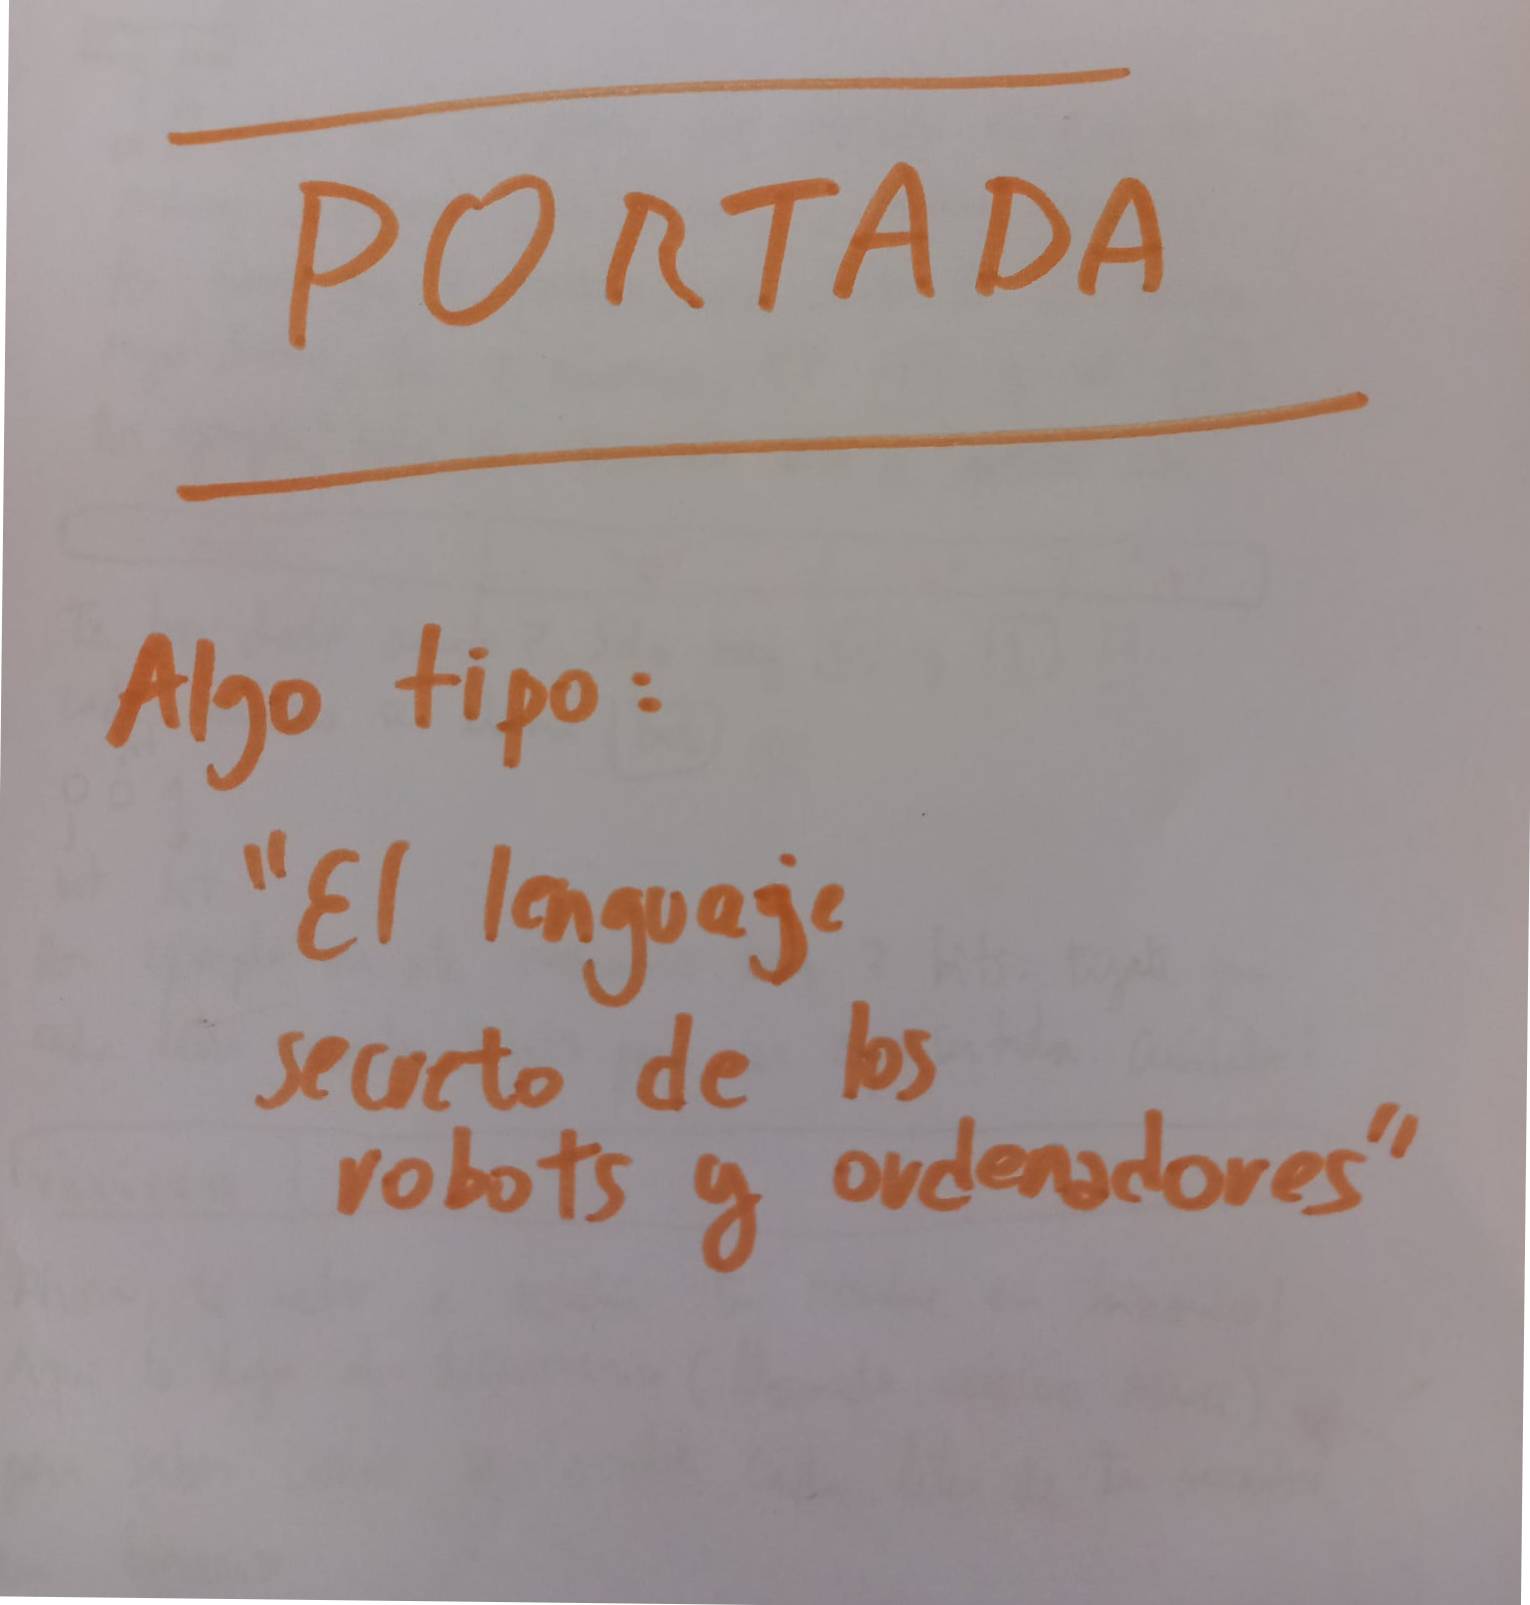 PORTADA
Algo tipo:
"El lenguaje
secreto de los
robots y ordenadores"